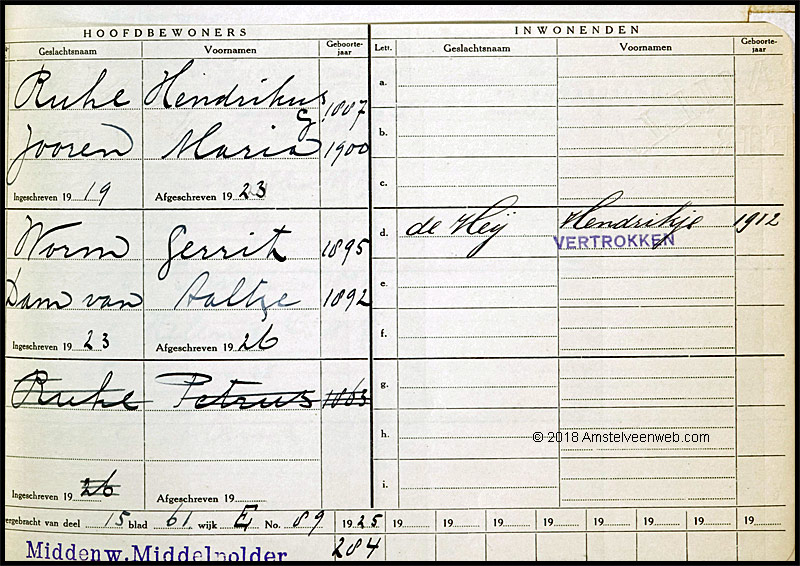 HOOFDBEWONERS
Geslachtsnaam Voornamen Geboorte-jaar
Ruhe Hendrikus G. 1887
Jooren Maria 1900
Ingeschreven 19 19 Afgeschreven 19 23
Worm Gerrit 1895
Dam van Aaltje 1892
Ingeschreven 19 23 Afgeschreven 19 26
Ruhe Petrus 1863
Ingeschreven 19 26 Afgeschreven 19
INWONENDEN
Lett. Geslachtsnaam Voornamen Geboorte-jaar
a.
b.
c.
d. de Heij Hendrikje 1912
VERTROKKEN
e.
f.
g.
h.
© 2018 Amstelveenweb.com
i.
ergebracht van deel 15 blad 61 wijk E No. 89 1925 19 19 19 19 19 19 19 19
Middenw. Middelpolder 284